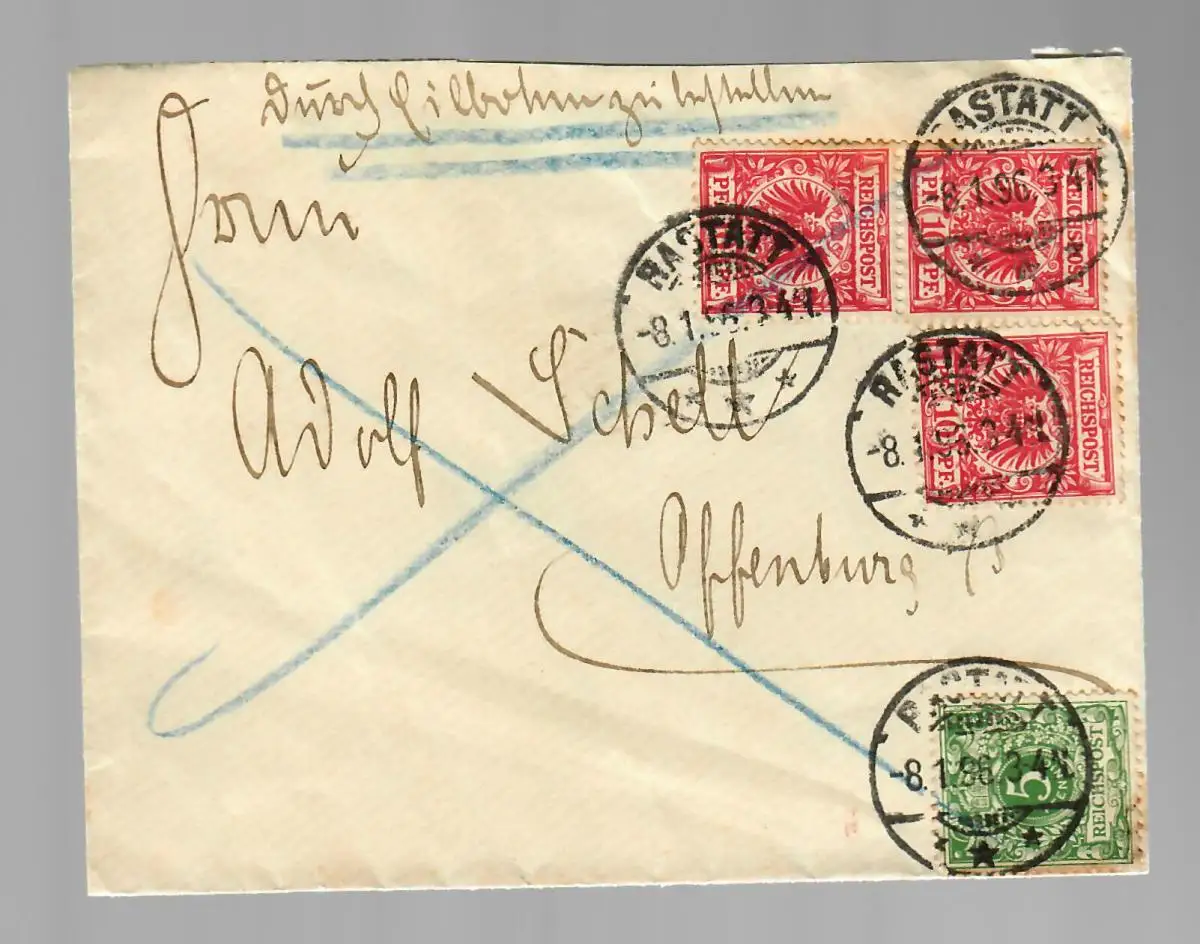 Durch Eilboten zu bestellen
Herrn
Adolf Schell
Offenburg i/B
RASTATT
-8.1.96.3-4N.
RASTATT
-8.1.96.3-4N.
RASTATT
-8.1.96.3-4N.
RASTATT
-8.1.96.3-4N.
REICHSPOST
10 PF.
REICHSPOST
10 PF.
REICHSPOST
10 PF.
REICHSPOST
5